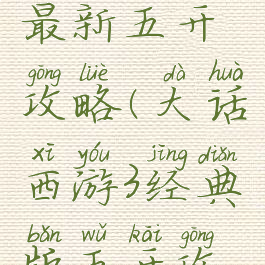 最新五开
gōng lüè dà huà
攻略(大话
xī yóu jīng diǎn
西游3经典
bǎn wǔ kāi gōng
版五开攻